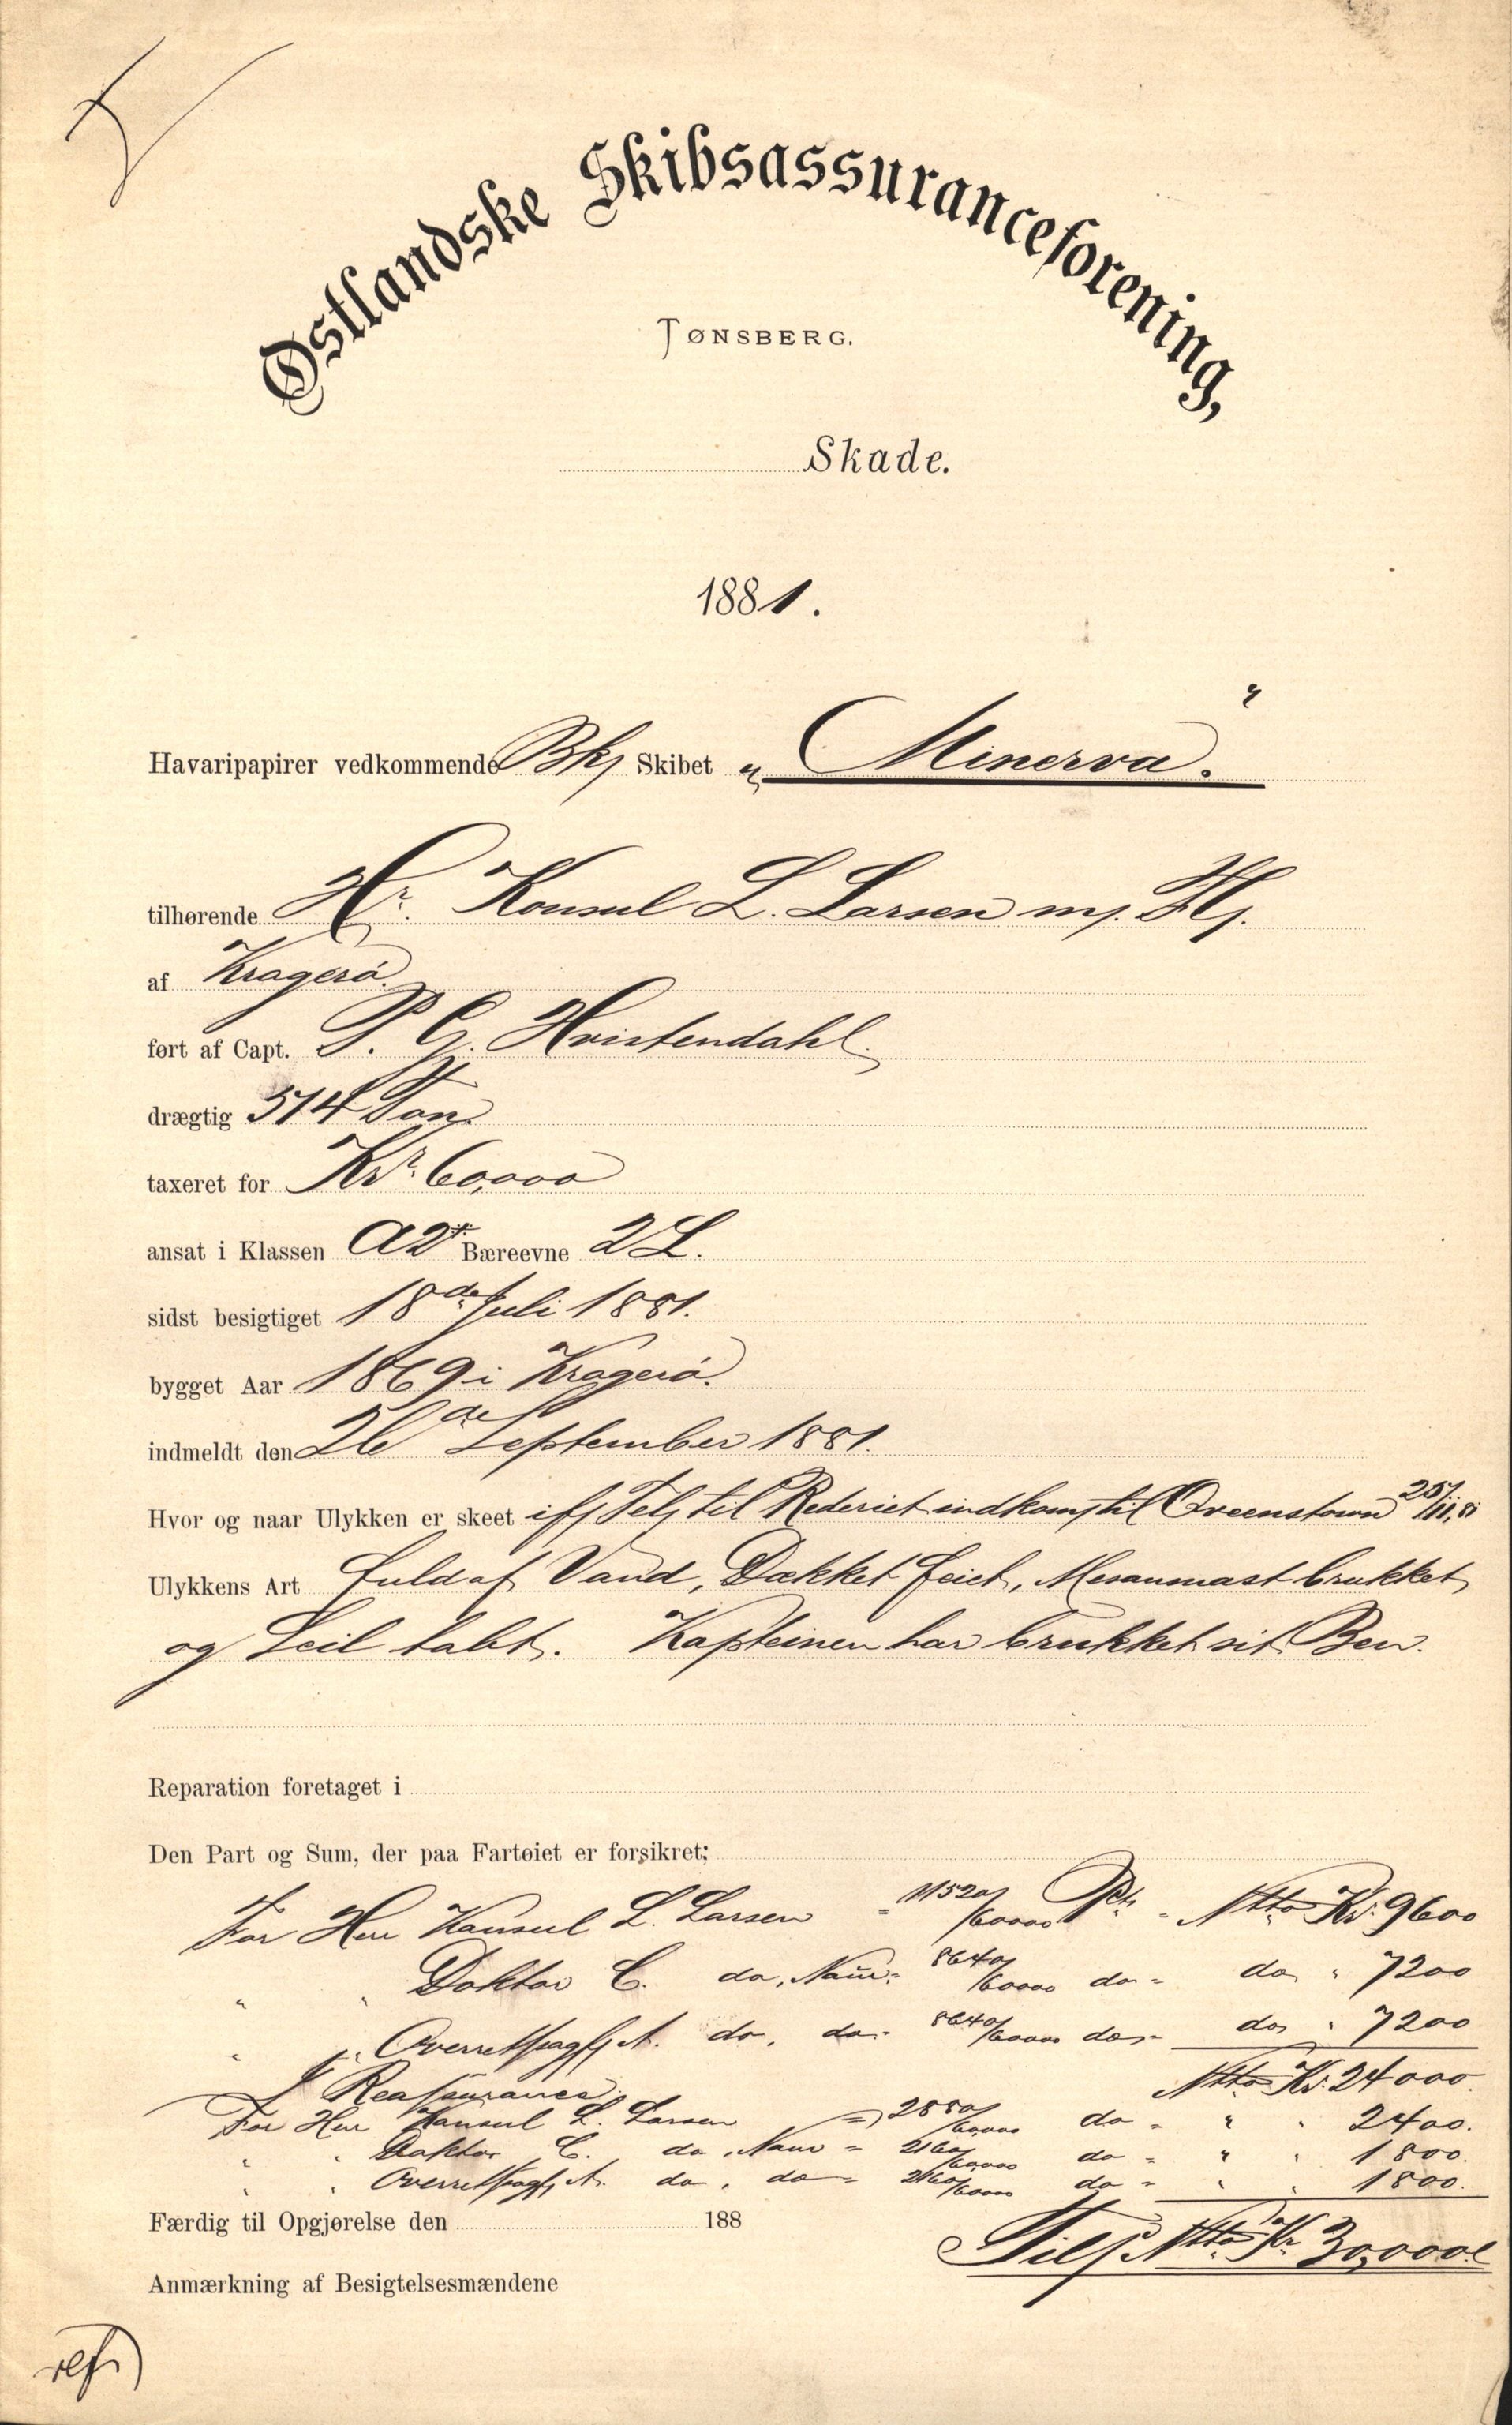 Østlandske Skibsassuranceforening,
TØNSBERG.
Skade.
1881.
Havaripapirer vedkommende Bk Skibet „Minerva."
tilhørende Hr. Konsul L. Larsen m. Fl.
af Kragerø.
ført af Capt. P. G. Hvistendahl.
drægtig 514 Ton
taxeret for Kr. 60,000
ansat i Klassen A2* Bæreevne 2 L.
sidst besigtiget 18de Juli 1881.
bygget Aar 1869 i Kragerø.
indmeldt den 26de September 1881.
Hvor og naar Ulykken er skeet if Tel til Rederiet indkom til Qveenstown 25/11,81
Ulykkens Art fuld af Vand, Dækket feiet, Mesanmast brukket
og Seil tabt. Kapteinen har brukket sit Ben.
Reparation foretaget i
Den Part og Sum, der paa Fartøiet er forsikret;
For Herr Konsul L. Larsen = 11520/60000 Pt. - Ntto Kr. 9600
" " Doktor C. do, Navn = 8640/60000 do - do " 7200
" " Overretssagf A. do, do = 8640/60000 do - do " 7200
I Reassurance. Ntto Kr. 24000.
For Herr Konsul L. Larsen = 2880/60,000 do - " " 2400.
" " Doktor C. do, Navn = 2160/60,000 do - " " 1800.
" " Overretssagf A. do, do = 2160/60000 do - " " 1800.
Færdig til Opgjørelse den 188
Tils. Ntto Kr 30,000
Anmærkning af Besigtelsesmændene
ref